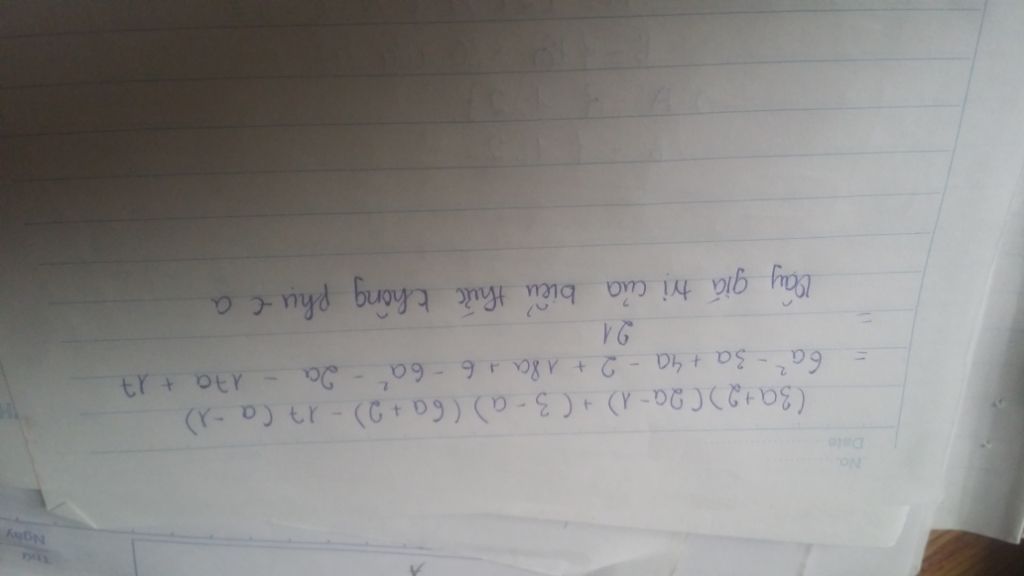 Thứ
Ngày
No.
Date
(3a+2)(2a-1)+(3-a)(6a+2)-17(a-1)
= 6a² - 3a + 4a - 2 + 18a + 6 - 6a² - 2a - 17a + 17
= 21
Vậy giá trị của biểu thức không phụ ∈ a